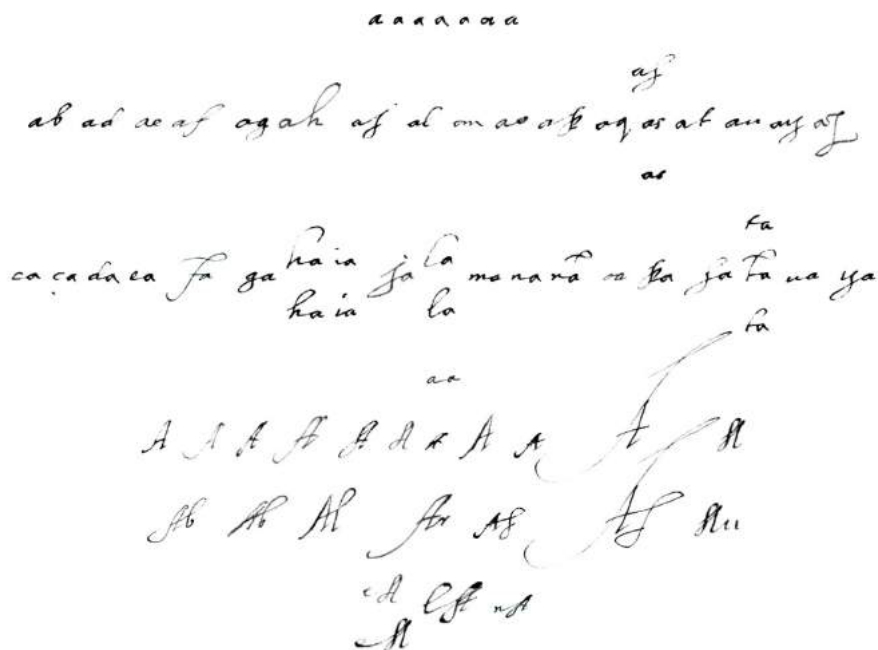 a a a a a a a
as
ab ad ae af ag ah aj al am ao ap aq as at au ay az
as
ta
ha ia la
ca ça da ea fa ga ja ma na ña oa pa sa ta ua ya
ha ia la
ta
aa
A A A A A A A A A A A
Ab Ab Al Ar As As Au
eA lA nA
A